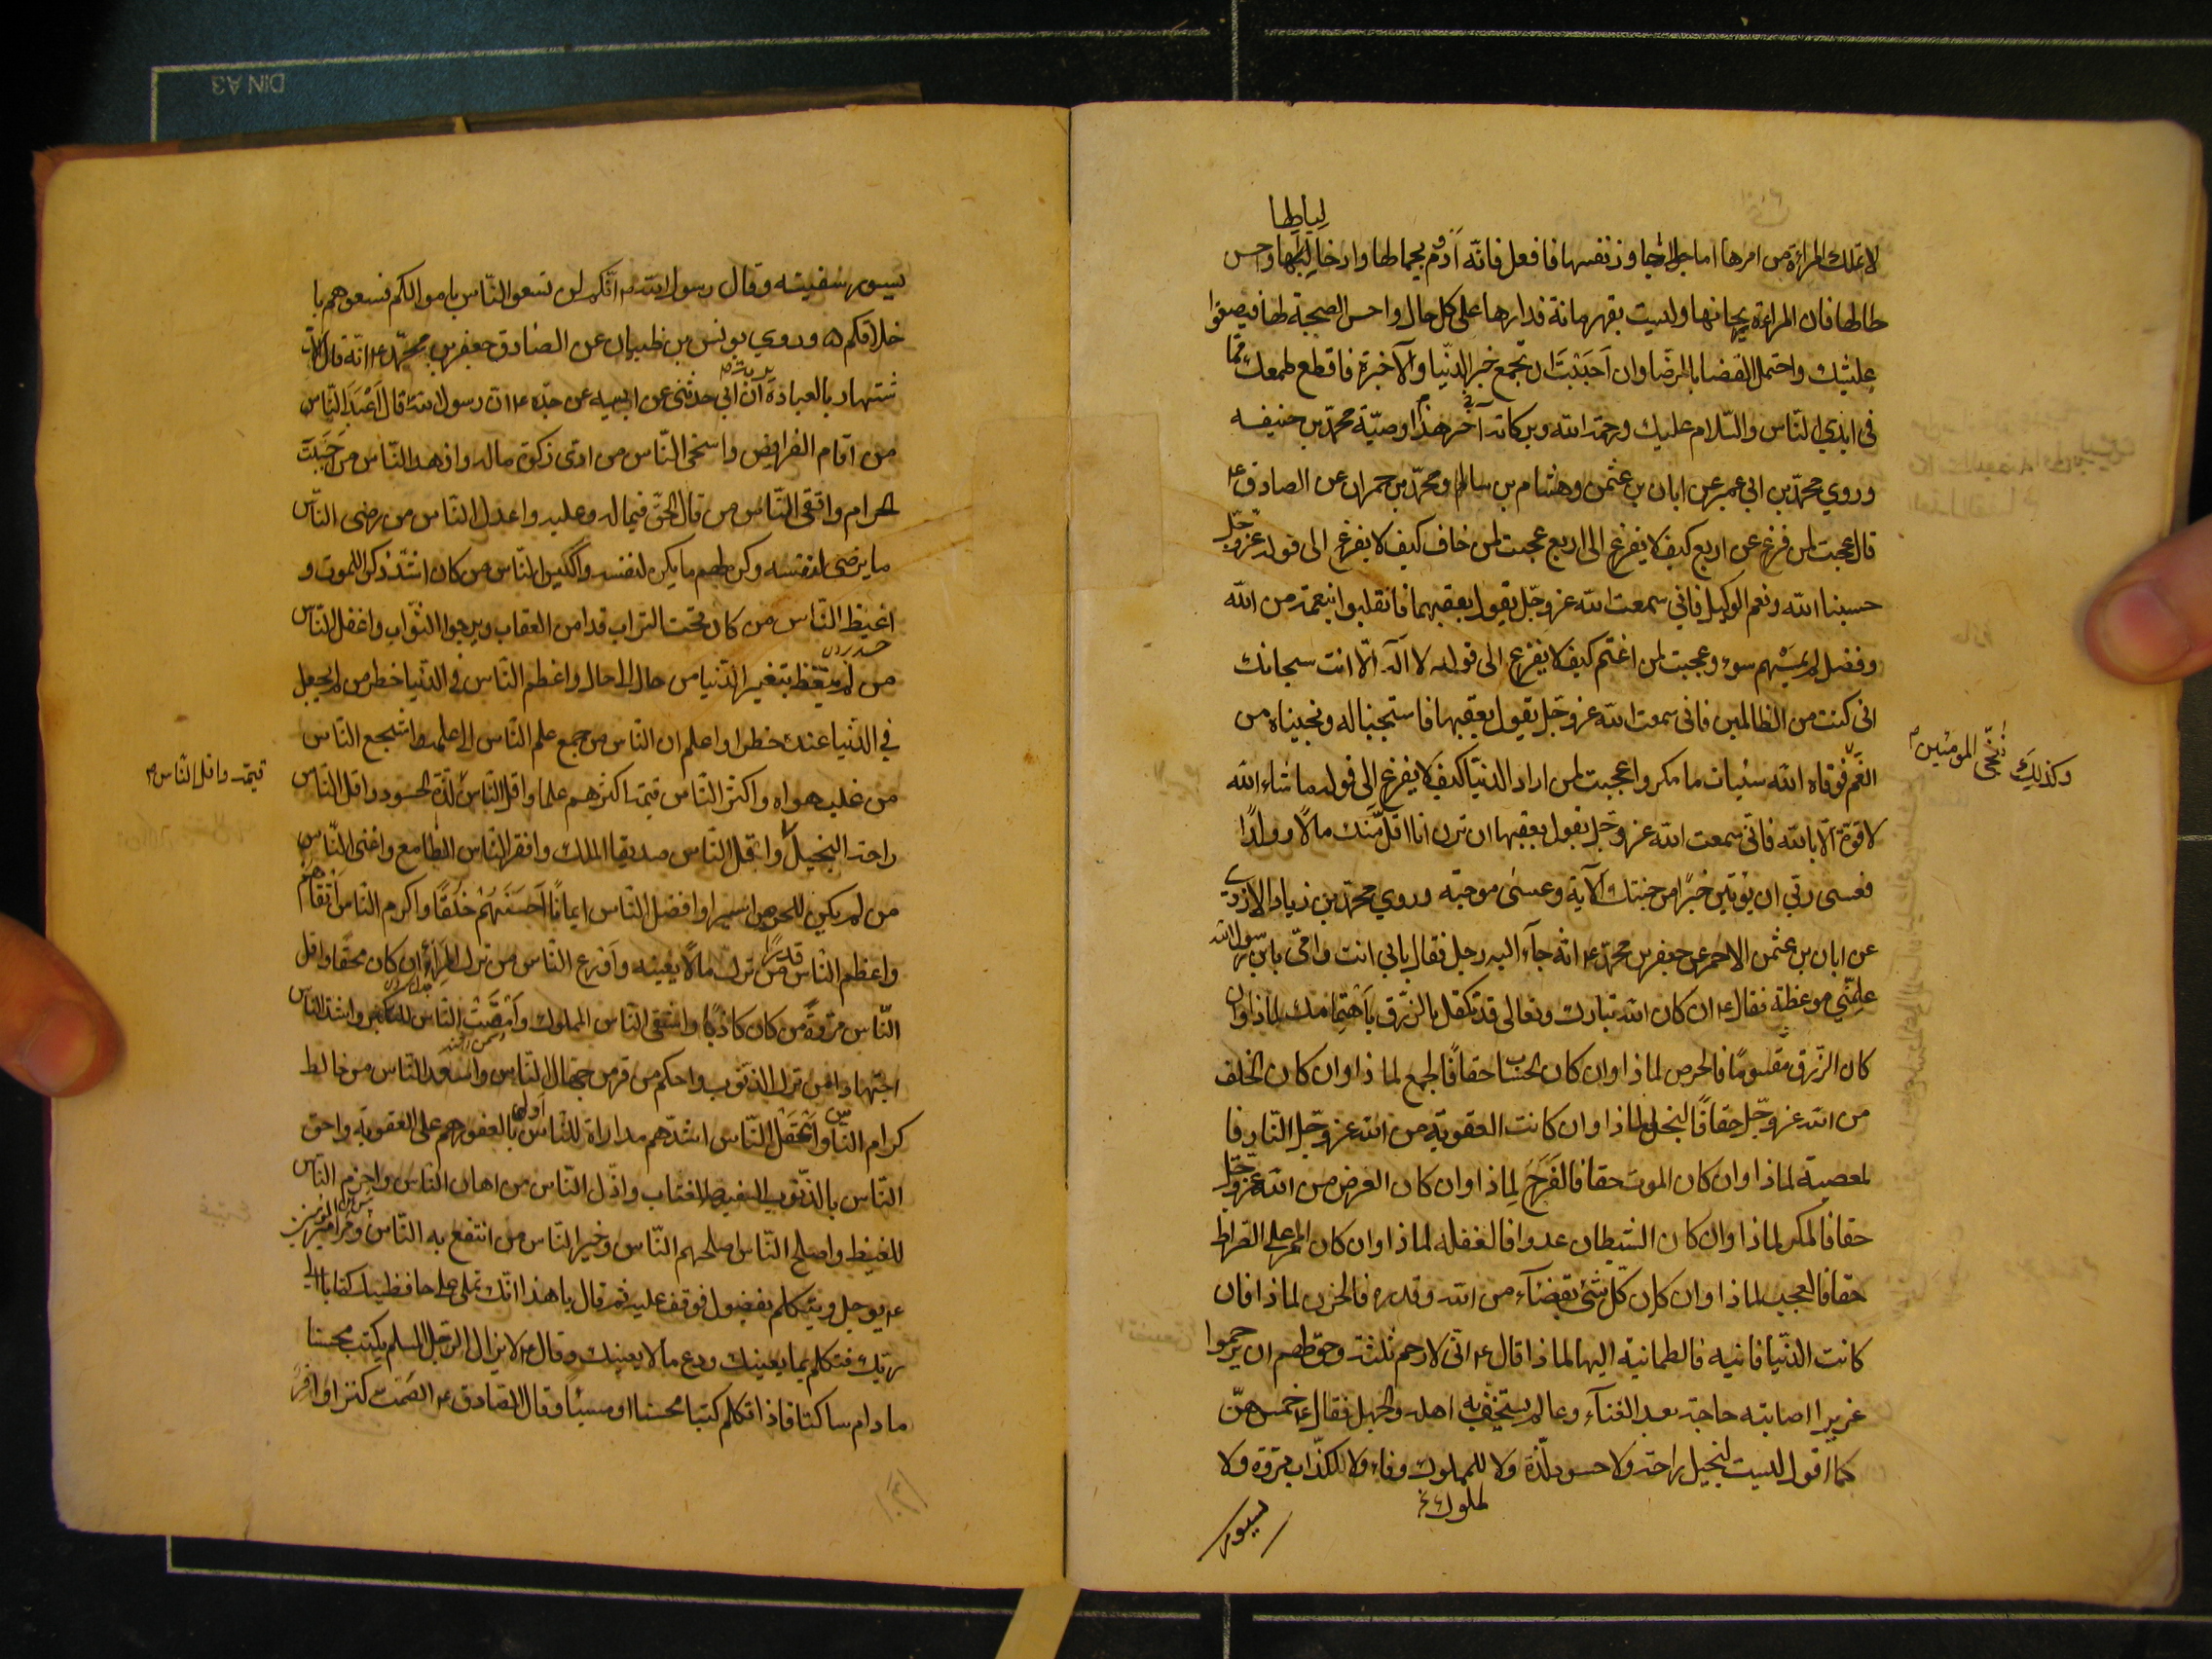 لا تملك المراة من امرها اما جل التجاوز نفسها فافعل فانّه ادوم بجمالها وارخا لبالها واحسن
لبالها
لحالها فان المراة ريحانها وليست بقهرمانة فدارها على كل حال واحسن الصحبة لها فيصفوا
عليشك واحتمل القضا بالرضا وان احببت ان تجمع خير الدنيا والاخرة فاقطع طمعك ممّا
فى ايدي الناس والسّلام عليك ورحمة الله وبركاته آخر هذا وصيّة محمّد بن حنيفه
وروي محمّد بن ابي عمير عن ابان بن عثمن وهشام بن سالم ومحمّد بن حمران عن الصادق ع
قال عجبت لمن فزع عن اربع كيف لا يفزع الى اربع عجبت لمن خاف كيف لا يفزع الى قوله عزوجلّ
حسبنا الله ونعم الوكيل فاني سمعت الله عزوجلّ يقول بعقبهما فانقلبوا بنعمة من الله
وفضل لم يمسهم سوء وعجبت لمن اغتمّ كيف لا يفزع الى قوله لا اله الّا انت سبحانك
انى كنت من الظالمين فانى سمعت الله عزوجل يقول بعقبها فاستجبنا له ونجيناه من
وكذلك ننجّى المومنين
الغمّ فوقاه الله سيئات ما مكروا وعجبت لمن اراد الدنيا كيف لا يفزع الى قوله ما شاء الله
لا قوّة الّا بالله فانّى سمعت الله عزوجلّ يقول بعقبها ان ترن انا اقلّ منك مالًا وولدًا
فعسى ربّي ان يؤتين خيرًا من جنتك الآية وعسىٰ موجبة وروي محمّد بن زياد الازدي
عن ابان بن عثمن الاحمر عن جعفر بن محمّد ع انه جآء اليه رجل فقال بابي انت وامّى يابن رسول الله
علمنّي موعظة فقال ع ان كان الله تبارك وتعالى قد تكفّل بالرّزق فاهتمامك لماذا وان
كان الرّزق مقسومًا فالحرص لماذا وان كان الحساب حقا فالجمع لماذا وان كان الخلف
من الله عزوجّل حقا فالبخل لماذا وان كانت العقوبة من الله عزوجّل النّار فا
لمعصية لماذا وان كان الموت حقا فالفرح لماذا وان كان العرض من الله عزوجلّ
حقا فالمكر لماذا وان كان الشيطان عدوا فالغفله لماذا وان كان الممر على الصّراط
حقا فالعجب لماذا وان كان كلّ شئ بقضآء من الله وقدره فالحزن لماذا فان
كانت الدّنيا فانيه فالطمانية اليها لماذا قال ع انّى لارحم ثلثة وحقّ لهم ان يرحموا
عزيرا اصابته حاجة بعد الغنآء وعالم يستخفّ به اهله والجهل فقال ع خمس هنّ
كما اقول ليست لبخيل راحة ولا حسود لذّة ولا للمملوك وفاء ولا لكذّاب مروّة ولا
لملوك خ
يسود
يسود سفيه وقال رسول الله ص انّكم لن تسعوا النّاس باموالكم فسعوهم با
خلاقكم ه وروي يونس بن ظبيان عن الصادق جعفر بن محمّد ع انّه قال الا
شتهار بالعبادة ان ابي حدثنى عن ابيه عن جدّه ع ان رسول الله قال اعبد النّاس
من اقام الفرايض واسخى النّاس من ادّى زكوة ماله وازهد النّاس من اجتنب
الحرام واتقى النّاس من قال الحقّ فيما له وعليه واعدل النّاس من رضى النّاس
ما يرضى لنفسه وكره لهم ما يكره لنفسه واكيس النّاس من كان اشدّ ذكرا للموت و
اغبط النّاس من كان تحت التراب قد امن العقاب ويرجوا الثواب واغفل النّاس
من لم يتعظ بتغير الدّنيا من حال الى حال واعظم النّاس فى الدّنيا خطر من لم يجعل
فى الدّنيا عنده خطرا واعلم ان النّاس من جمع علم النّاس الى علمه واشجع النّاس
قيمة واقل النّاس
من غلب هواه واكثر النّاس قيمة اكثرهم علما واقل النّاس لذّة الحسود واقل النّاس
راحة البخيل وابخل النّاس صديقا الملك وافقر النّاس الطّامع واغنى النّاس
من لم يكن للحرص اسيرا وافضل النّاس ايمانًا احسنهم خلقًا واكرم النّاس اتقاهم
واعظم النّاس قدرًا من ترك مالًا يعينه واورع النّاس من ترك المرآء وان كان محقّا واقل
النّاس مروّة من كان كاذبًا واشقى النّاس المملوك وامقت النّاس المتكبر واشدّ النّاس
اجتهادا من ترك الذنوب واحكم من فر من جهّال النّاس واسعد النّاس من خالط
كرام النّاس واعقل النّاس اشدّهم مداراة للنّاس اولى بالعفو اقدرهم على العقوبة واحق
النّاس بالذّنوب السفيه المغتاب واذّل النّاس من اهان النّاس واحزم النّاس
للغيظ واصلح النّاس اصلحهم النّاس وخير النّاس من انتفع به النّاس ومرّ امير المومنين
ع برجل ويتكلم بفضول فوقف عليه ثم قال يا هذا انّك تملى على حافظيك كتابا الى
ربك فتكلم بما يعينك ودع ما لا يعينك وقال ع لا يزال الرّجل المسلم يكتب محسنا
ما دام ساكتا فاذا تكلم كتبا محسنا او مسيئًا وقال الصّادق ع الصّمت كنز وافر